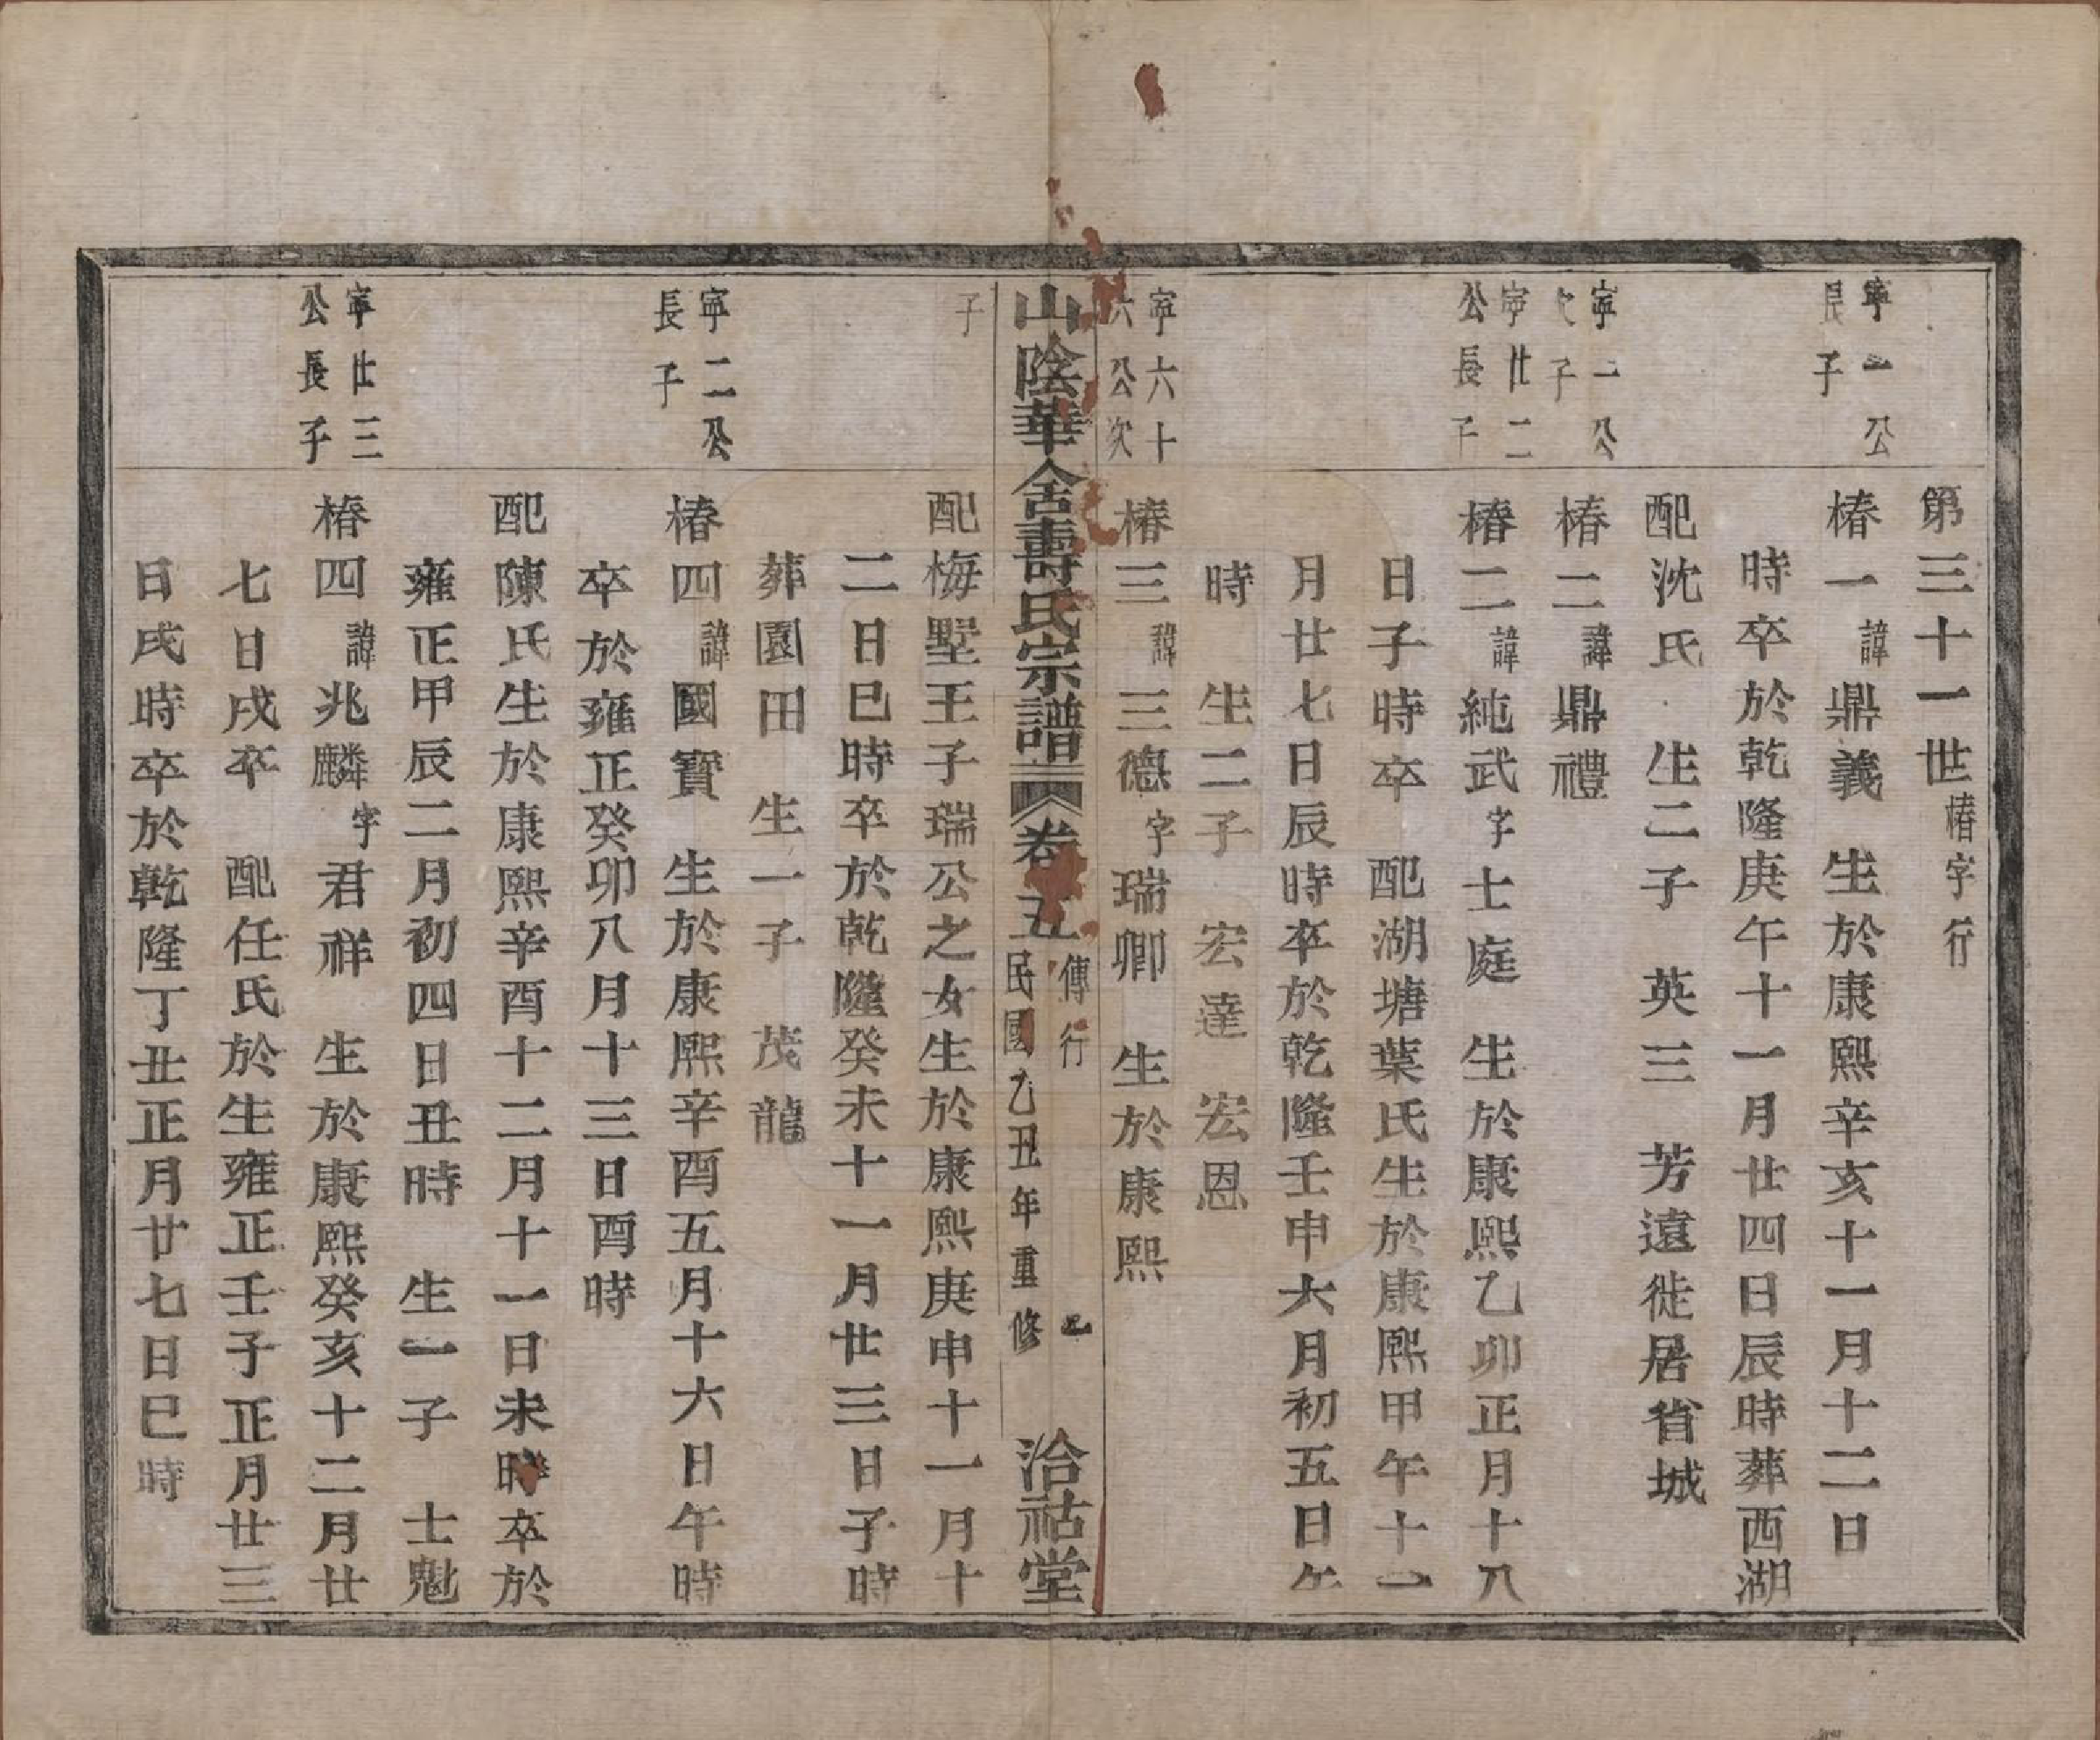 第三十一世椿字行
寧一公
長子
椿一諱鼎義　生於康熙辛亥十一月十二日
時卒於乾隆庚午十一月廿四日辰時葬西湖
配沈氏　生二子　英三　芳遠徙居省城
寧一公
次子
椿二諱鼎禮
寧廿二
公長子
椿二諱純武字士庭　生於康熙乙卯正月十八
日子時卒　配湖塘葉氏生於康熙甲午十一
月廿七日辰時卒於乾隆壬申六月初五日午
時　生二子　宏達　宏恩
寧六十
六公次
椿三諱三德字瑞卿　生於康熙
山陰華舍壽氏宗譜
卷五
傳行
民國乙丑年重修
洽祜堂
子
配梅墅王子瑞公之女生於康熙庚申十一月十
二日巳時卒於乾隆癸未十一月廿三日子時
葬園田　生一子　茂龍
寧二公
長子
椿四諱國寶　生於康熙辛酉五月十六日午時
卒於雍正癸卯八月十三日酉時
配陳氏生於康熙辛酉十二月十一日未時卒於
雍正甲辰二月初四日丑時　生一子　士魁
寧廿三
公長子
椿四諱兆麟字君祥　生於康熙癸亥十二月廿
七日戌卒　配任氏於生雍正壬子正月廿三
日戌時卒於乾隆丁丑正月廿七日巳時